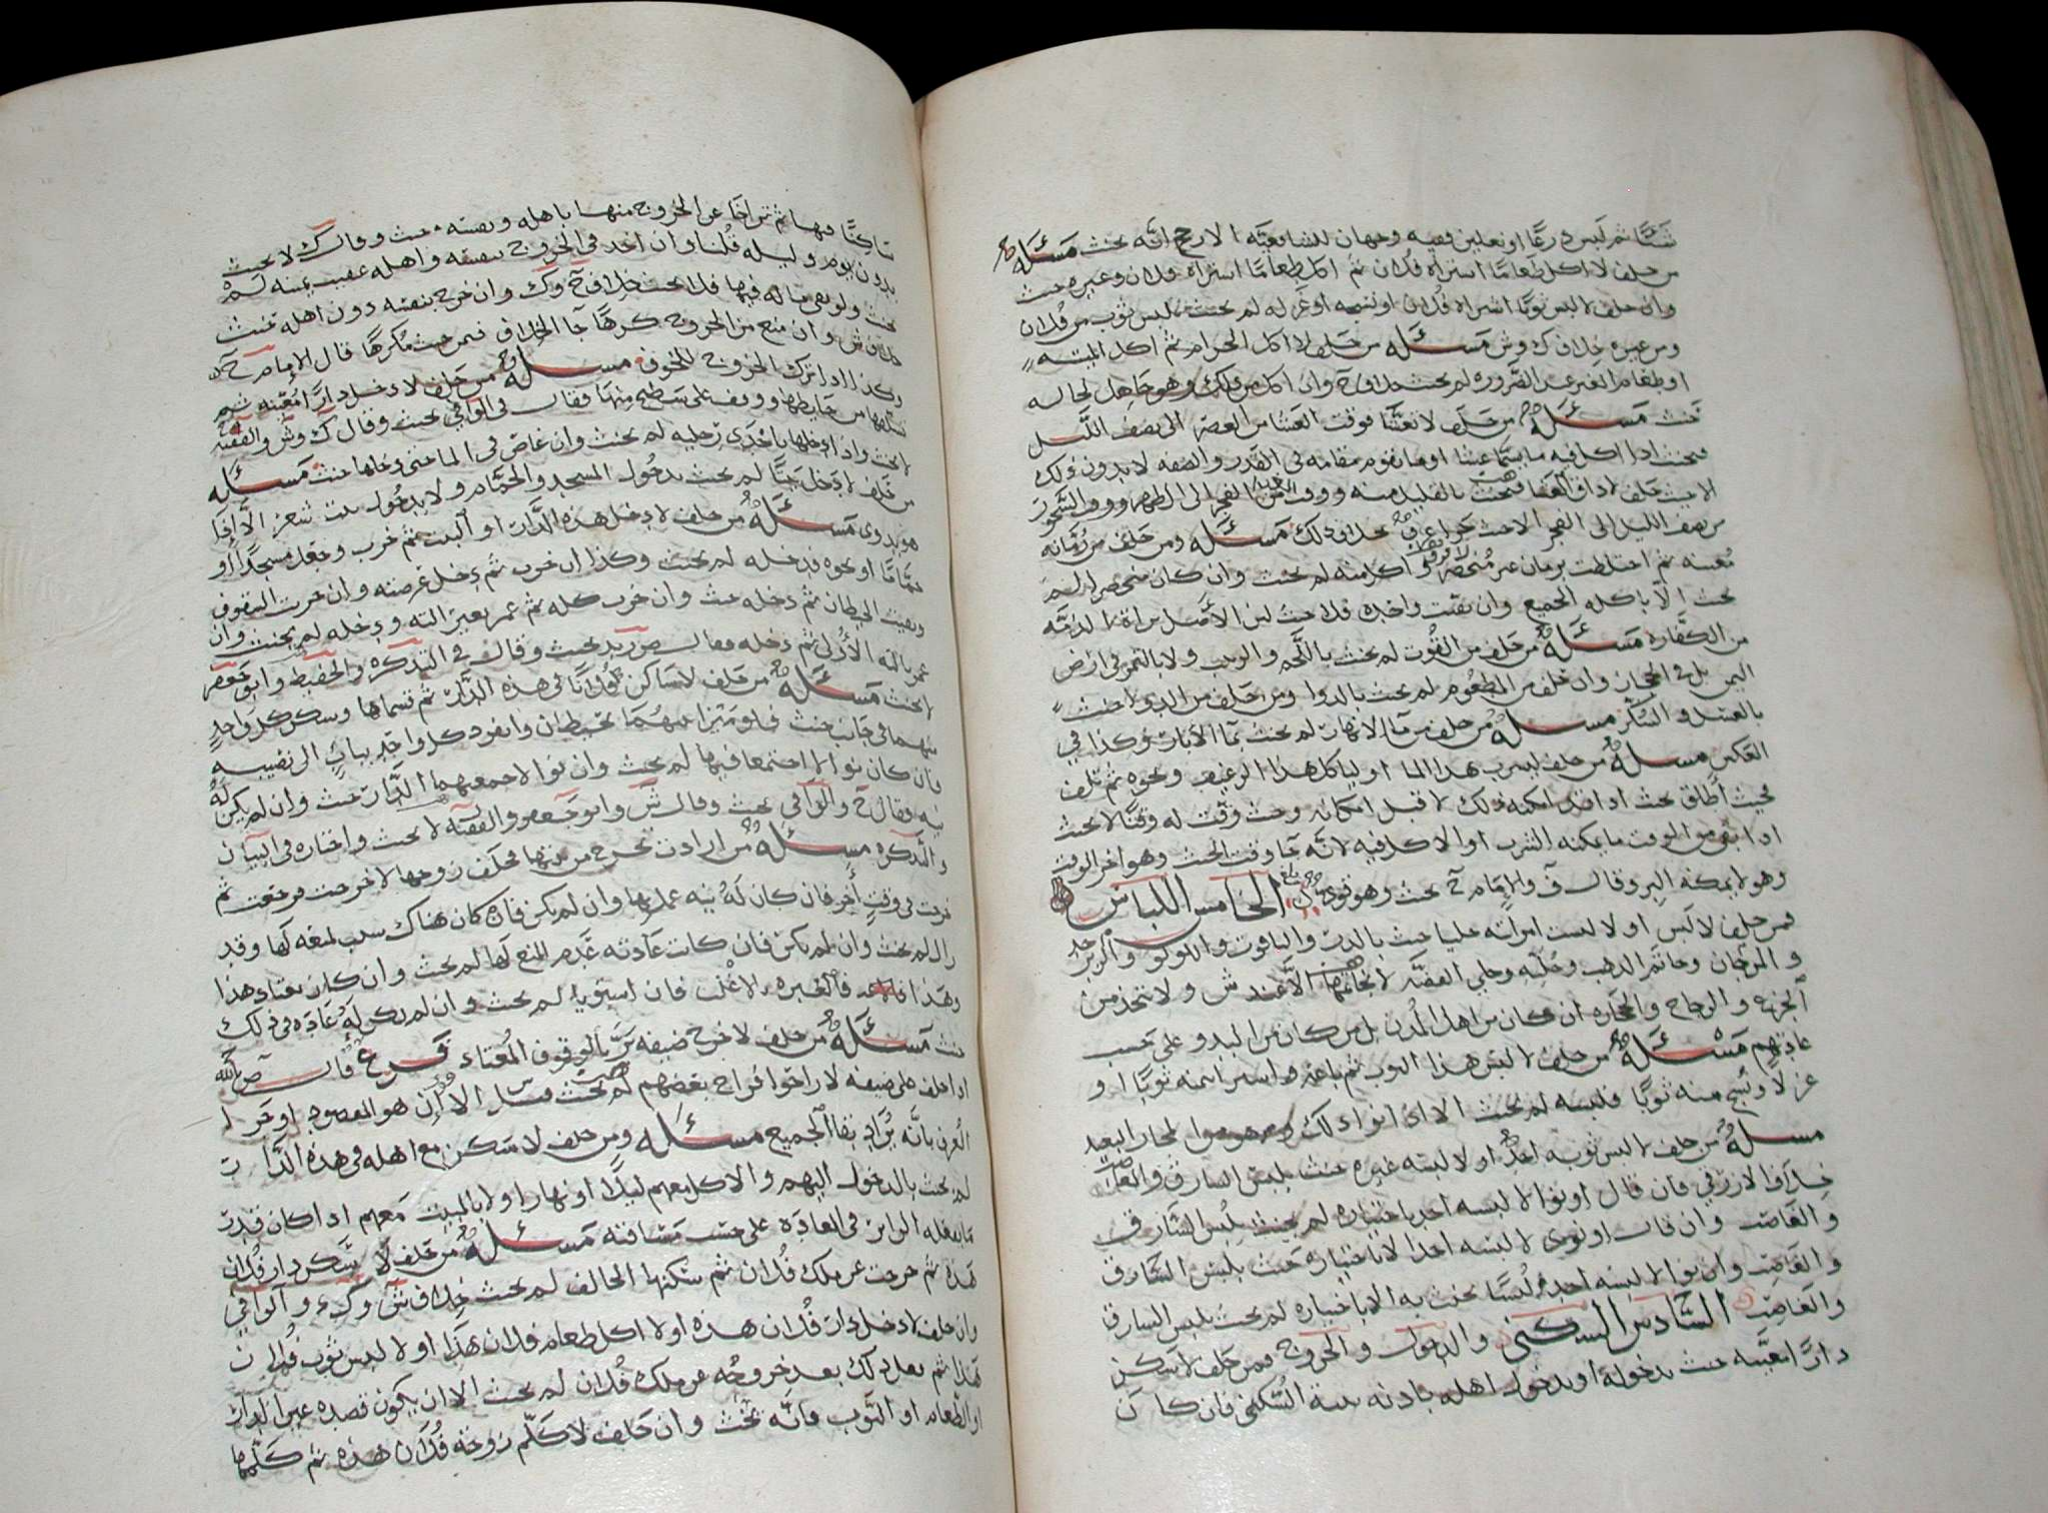 شيئًا ثم لبس درعًا او نعلين ففيه وجهان للشافعية الارجح انه يحنث مسئله
من حلف لا اكل طعامًا اشتراه فلان ثم اكل طعامًا اشتراه فلان وغيره حنث
وان حلف لا لبس ثوبًا اشتراه فلان او نسجه او غزله لم يحنث بلبس ثوب من فلان
ومن غيره خلاف ك وش مسئله من حلف لا اكل الحرام ثم اكل الميته
او طعام الغير عند الضروره لم يحنث خلاف ح وان اكل من ملك وهو جاهل لحاله
حنث مسئله من حلف لا تعشا فوقت العشا من العصر الى نصف الليل
فيحنث اذا اكل فيه ما يسما عشا او ما يقوم مقامه في القدر والصفه لا بدون ذلك
من نصف الليل الى الفجر مسئله ومن حلف من رمانه
معينه ثم اختلطت برمان غير منحصر لم يحنث وان كان منحصرا لم
يحنث الا باكله الجميع وان بقيت واحده فلا حنث لان الاصل براة الذمه
من الكفاره مسئله من حلف من القوت لم يحنث باللحم والزبيب ولا بالتمر في ارض
اليمن بل في الحجاز وان حلف من المطعوم لم يحنث بالدوا ومن حلف من الدوا حنث
بالعسل والسكر مسئله من حلف من ما الانهار لم يحنث بما الابار وكذا في
العكس مسئله من حلف ليشرب هذا الما او لياكل هذا الرغيف ونحوه ثم تلف
فحيث اطلق يحنث اذا قد امكنه ذلك لا قبل امكانه وحيث وقت له وقتًا لا يحنث
اذا بقي من الوقت ما يمكنه الشرب او الاكل فيه لانه جا وقت الحنث وهو اخر الوقت
وهو لا يمكنه البر وقال ف والامام ح يحنث وهو قوي الخامس اللباس
فمن حلف لا لبس او لا لبست امراته حليا حنث بالدر والياقوت واللولو والزبرجد
والمرجان وخاتم الذهب وحليه وحلي الفضه لا بخاتمها الا عند ش ولا بتخذ من
الجزع والزجاج والحجاره ان كان من اهل المدن بل من كان من البدو على حسب
عادتهم مسئله من حلف لا لبس هذا الثوب ثم باعه واشترا بثمنه ثوبًا او
غزلا ونسج منه ثوبًا فلبسه لم يحنث الا اذا نوا ذلك
مسئله من حلف لا لبس ثوبه احد او لا لبسه غيره حنث بلبس السارق والغاصب
خلاف الازرقي فان قال او نوا لا لبسه احد باختياره لم يحنث بلبس السارق
والغاصب وان قال او نوى لا لبسه احدا لا باختياره حنث بلبس السارق
والغاصب وان نوا لا لبسه احد لبسًا يحنث به الا باختياره لم يحنث بلبس السارق
والغاصب السادس السكنى والدخول والخروج فمن حلف لا سكن
دارًا معينه حنث بدخوله او بدخول اهله باذنه بنية السكنى فان كان
ساكنًا فيها ثم تراخا عن الخروج منها باهله ونفسه حنث وقال ك لا يحنث
بدون يوم وليله قلنا وان اخذ في الخروج بنفسه واهله عقيب يمينه لم
يحنث ولو بقي ماله فيها فلا يحنث خلاف ح وك وان خرج بنفسه دون اهله حنث
خلاف ش وان منع من الخروج كرهًا جا الخلاف فيمن حنث مكرهًا قال الامام ح
وكذا اذا ترك الخروج للخوف مسئله من حلف لا دخل دارًا معينه ثم
تسلقها من حايطها ووقف على سطح منها فقال في الوافي يحنث وقال ك وش والفقيه
لا يحنث واذا ادخلها باحدى رجليه لم يحنث وان غاص في الما حتى دخلها حنث مسئله
من حلف لا دخل بيتًا لم يحنث بدخول المسجد والحمام ولا بدخول بيت شعر الا اذا
هو بدوي مسئله من حلف لا دخل هذه الدار او البيت ثم خرب وجعل مسجدًا او
حمامًا او نحوه فدخله لم يحنث وكذا ان خرب ثم دخل عرصته وان خربت السقوف
وبقيت الحيطان ثم دخله حنث وان خرب كله ثم عمر بغير الته ودخله لم يحنث وان
عمر بالته الاولى ثم دخله فقال ص زيد يحنث وقال في التذكره والحفيظ وابو جعفر
لا يحنث مسئله من حلف لا ساكن فلانًا في هذه الدار ثم قسماها وسكن كل واحد
منهما في جانب حنث فلو ميزا بينهما بحيطان وانفرد كل واحد بباب الى نصيبه
فان كان نوا لا اجتمعا فيها لم يحنث وان نوا لا جمعتهما الدار حنث وان لم يكن له
نيه فقال ح والوافي يحنث وقال ش وابو جعفر والفقيه لا يحنث واختاره في البيان
والتذكره مسئله من ارادت تخرج من بيتها فحلف زوجها لا خرجت فرجعت ثم
خرجت في وقت آخر فان كان له نيه عمل بها وان لم يكن فان كان هناك سبب لمنعه لها وقد
زال لم يحنث وان لم يكن فان كانت عادته عدم المنع لها لم يحنث وان كان يعتاد هذا
وهذا فالعبره بالاغلب فان استويا لم يحنث وان لم يكن له عاده في ذلك
حنث مسئله من حلف لا خرج ضيفه بر بالوقوف المعتاد فرع قال ص بالله
اذا حلف على ضيفه لا راحوا فراح بعضهم لم يحنث الا ان هو المقصود او جرا
العرف بانه يراد بقا الجميع مسئله ومن حلف لا سكن مع اهله في هذه الدار
لم يحنث بالدخول اليهم والاكل معهم ليلًا او نهارا ولا بالمبيت معهم اذا كان قدر
ما يفعله الزاير في العاده على حسب مسافته مسئله من حلف لا سكن دار فلان
هذه ثم خرجت عن ملك فلان ثم سكنها الحالف لم يحنث خلاف ش وك والوافي
وان حلف لا دخل دار فلان هذه او لا اكل طعام فلان هذا او لا لبس ثوب فلان
هذا ثم فعل ذلك بعد خروجه عن ملك فلان لم يحنث الا ان يكون قصده عين الدار
او الطعام او الثوب فانه يحنث وان حلف لا كلم زوجة فلان هذه ثم كلمها